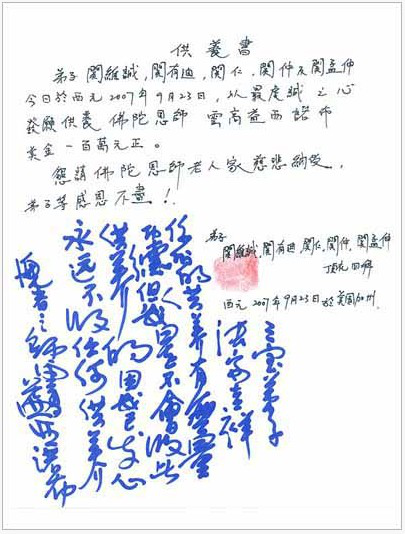 供養書
弟子 關維誠,關有迪,關仁,關仲及關孟仲
今日於西元2007年9月23日,以最虔誠之心
發願供養 佛陀恩師 雲高益西諾布
美金一百萬元正。
懇請佛陀恩師老人家慈悲納受,
弟子等感恩不盡!
弟子
關維誠,關有迪,關仁,關仲,關孟仲
頂禮 叩拜
西元2007年9月23日於美國加州.
三宝弟子
法安吉祥
你们的供养有無量
功德但是不會收此
供养的因我已发心
永远不收任何供养
愧者之師